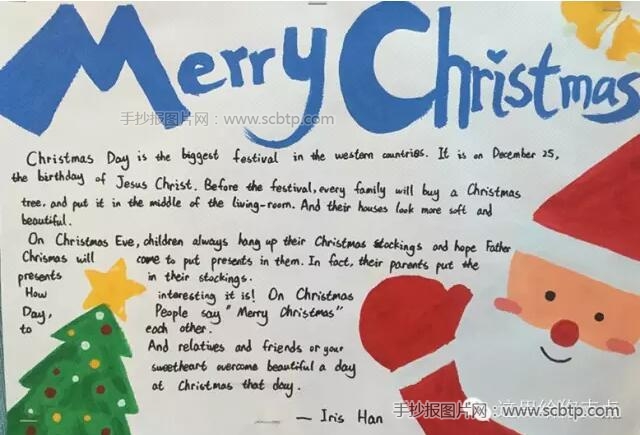 Merry Christmas
手抄报图片网：www.scbtp.com
Christmas Day is the biggest festival in the western countries. It is on December 25,
the birthday of Jesus Christ. Before the festival, every family will buy a Christmas
tree, and put it in the middle of the living-room. And their houses look more soft and
beautiful.
On Christmas Eve, children always hang up their Christmas stockings and hope Father
Chrismas will come to put presents in them. In fact, their parents put the
presents in their stockings.
How interesting it is! On Christmas
Day, People say "Merry Christmas"
to each other.
And relatives and friends or your
sweetheart overcome beautiful a day
at Christmas that day.
— Iris Han
手抄报图片网：www.scbtp.com